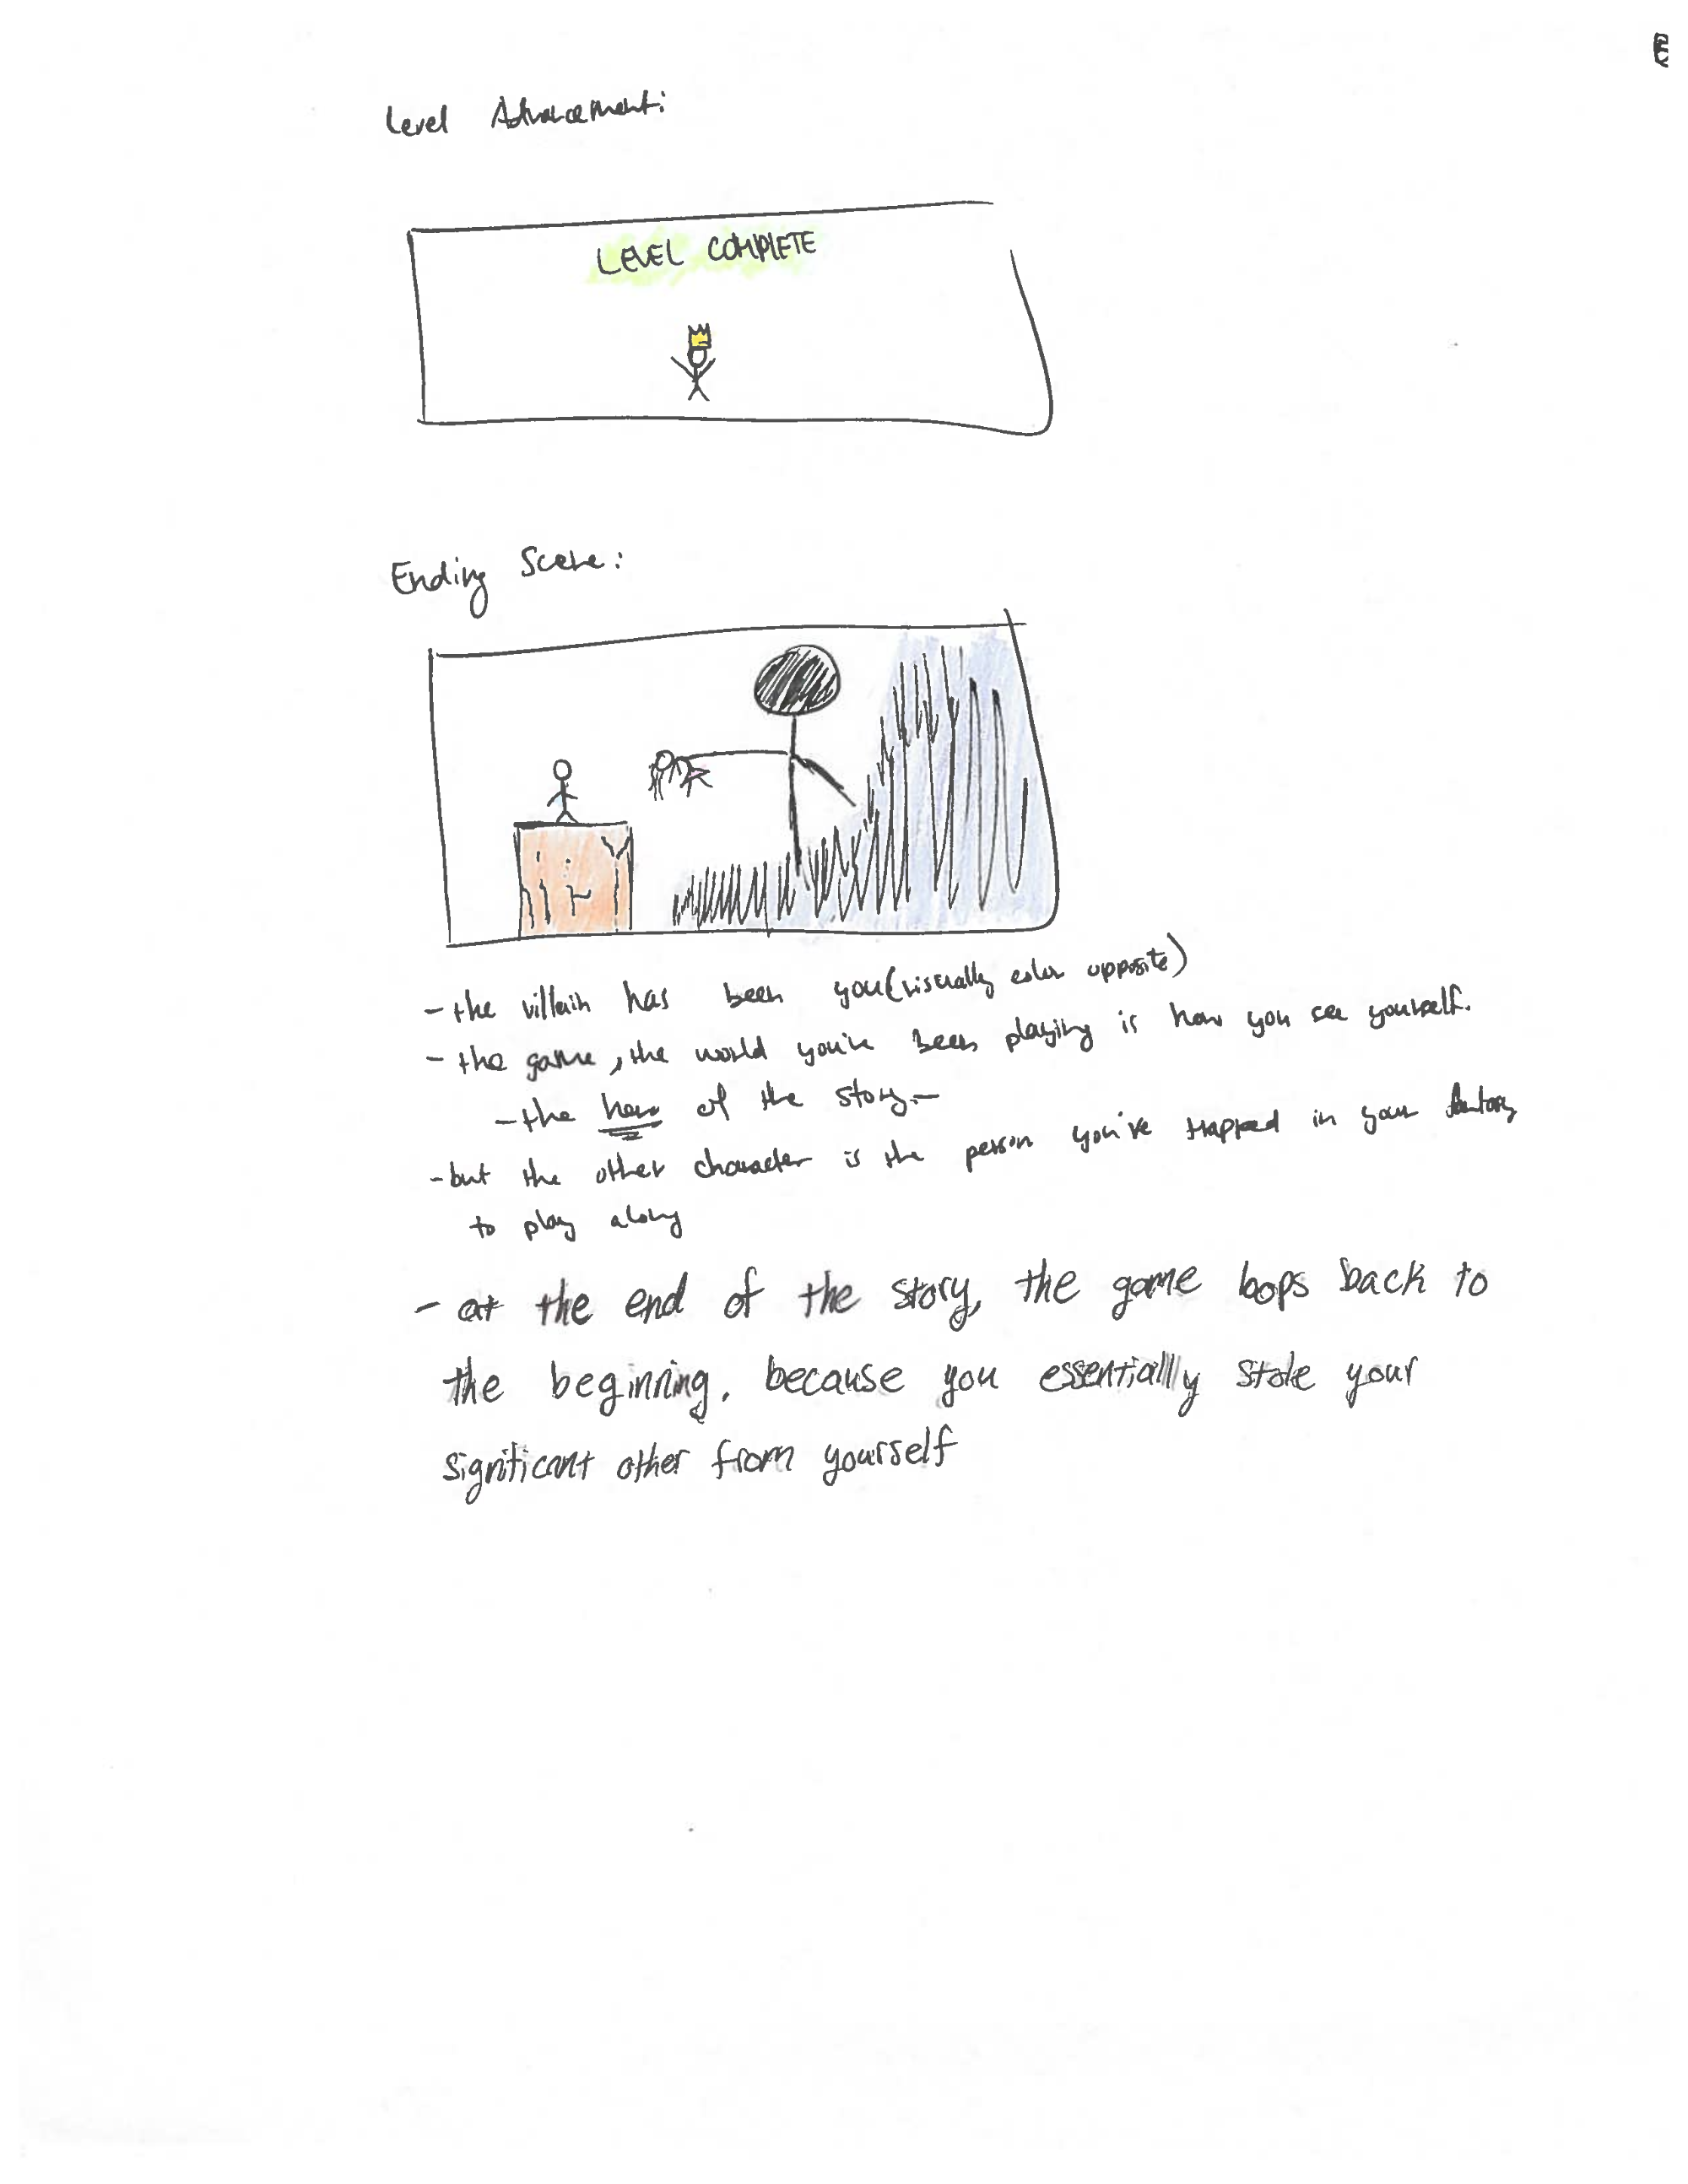 Level Advancement:
LEVEL COMPLETE
Ending Scene:
- the villain has been you (visually color opposite)
- the game, the world you've been playing is how you see yourself.
- the hero of the story -
- but the other character is the person you've trapped in your fantasy
to play along
- at the end of the story, the game loops back to
the beginning, because you essentially stole your
significant other from yourself